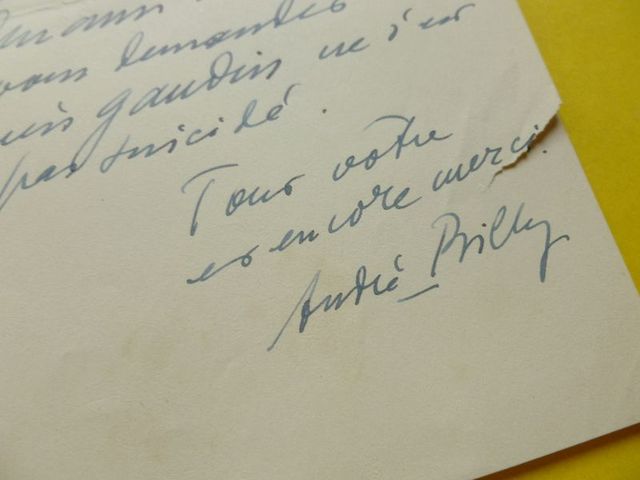 vous demandes
Gaudin ne s'est
pas suicidé.
Tous votre
et encore merci.
André Billy